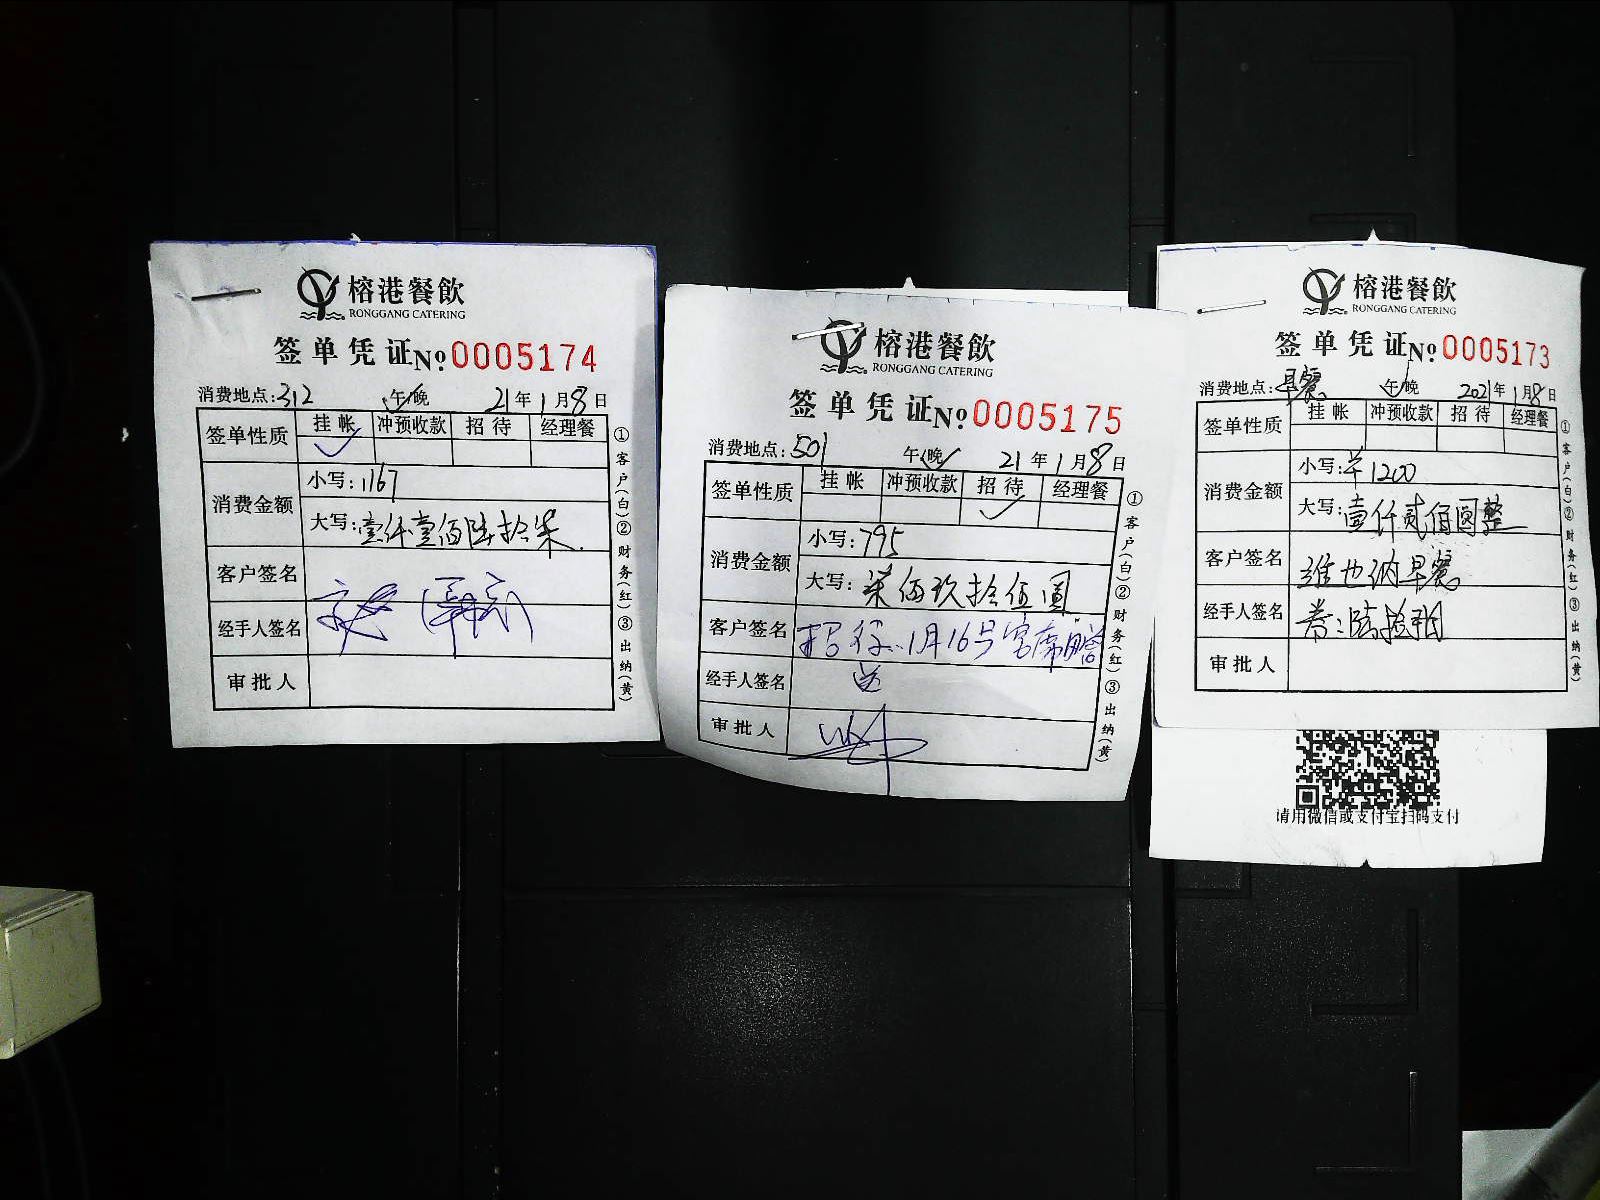 榕港餐飲
RONGGANG CATERING
签单凭证 No.0005174
消费地点:312 午/晚 21年1月8日
签单性质 挂帐 冲预收款 招待 经理餐
消费金额
小写:1167
大写:壹仟壹佰陆拾柒
客户签名
经手人签名
审批人
①客户(白)②财务(红)③出纳(黄)
榕港餐飲
RONGGANG CATERING
签单凭证 No.0005175
消费地点:501 午/晚 21年1月8日
签单性质 挂帐 冲预收款 招待 经理餐
消费金额
小写:795
大写:柒佰玖拾伍圆
客户签名 招待 1月16号宴席
经手人签名 送
审批人
①客户(白)②财务(红)③出纳(黄)
榕港餐飲
RONGGANG CATERING
签单凭证 No.0005173
消费地点:早餐 午/晚 2021年1月8日
签单性质 挂帐 冲预收款 招待 经理餐
消费金额
小写:¥1200
大写:壹仟贰佰圆整
客户签名 维也纳早餐
经手人签名 券:陆拾张
审批人
①客户(白)②财务(红)③出纳(黄)
请用微信或支付宝扫码支付